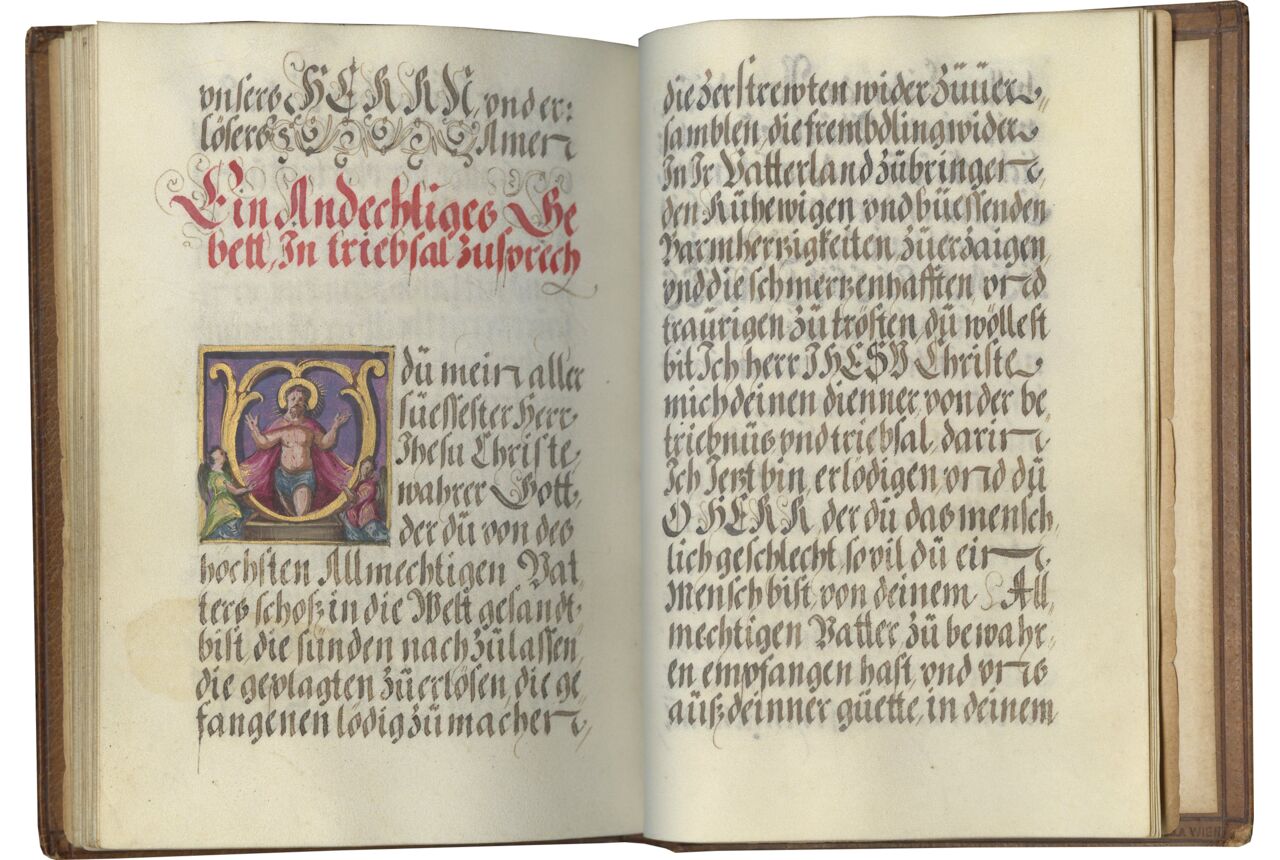 vnsers HERRN, vnd er:
lösers Amen
Ein Andechtiges Ge
bett, In triebsal zusprech
O du mein aller
süessester Herr
Jhesu Christe,
wahrer Gott,
der dü von des
höchsten Allmechtigen Vat,
ters schoß in die Welt gesandt
bist, die sünden nach zü lassen,
die geplagten zü erlösen, die ge,
fangenen lödig zü machen,
die zerstrewten wider züuer,
samblen, die frembdling wider
In Ir Vatterland zübringen,
den Rühewigen vnd büessenden
Barmhertzigkeiten züerzaigen,
vnd die schmertzenhafften, vnd
traürigen zü trösten, dü wöllest
bit Ich herr IHESV Christe,
mich deinen dienner, von der be,
triebnüs vnd triebsal, darin,
Ich Jetzt bin, erlödigen, vnd dü
O HERR, der dü das mensch,
lich geschlecht, so vil dü ein,
Mensch bist, von deinem All,
mechtigen Vatter zü bewahr,
en empfangen hast, vnd vns
aüß deinner güette, in deinem